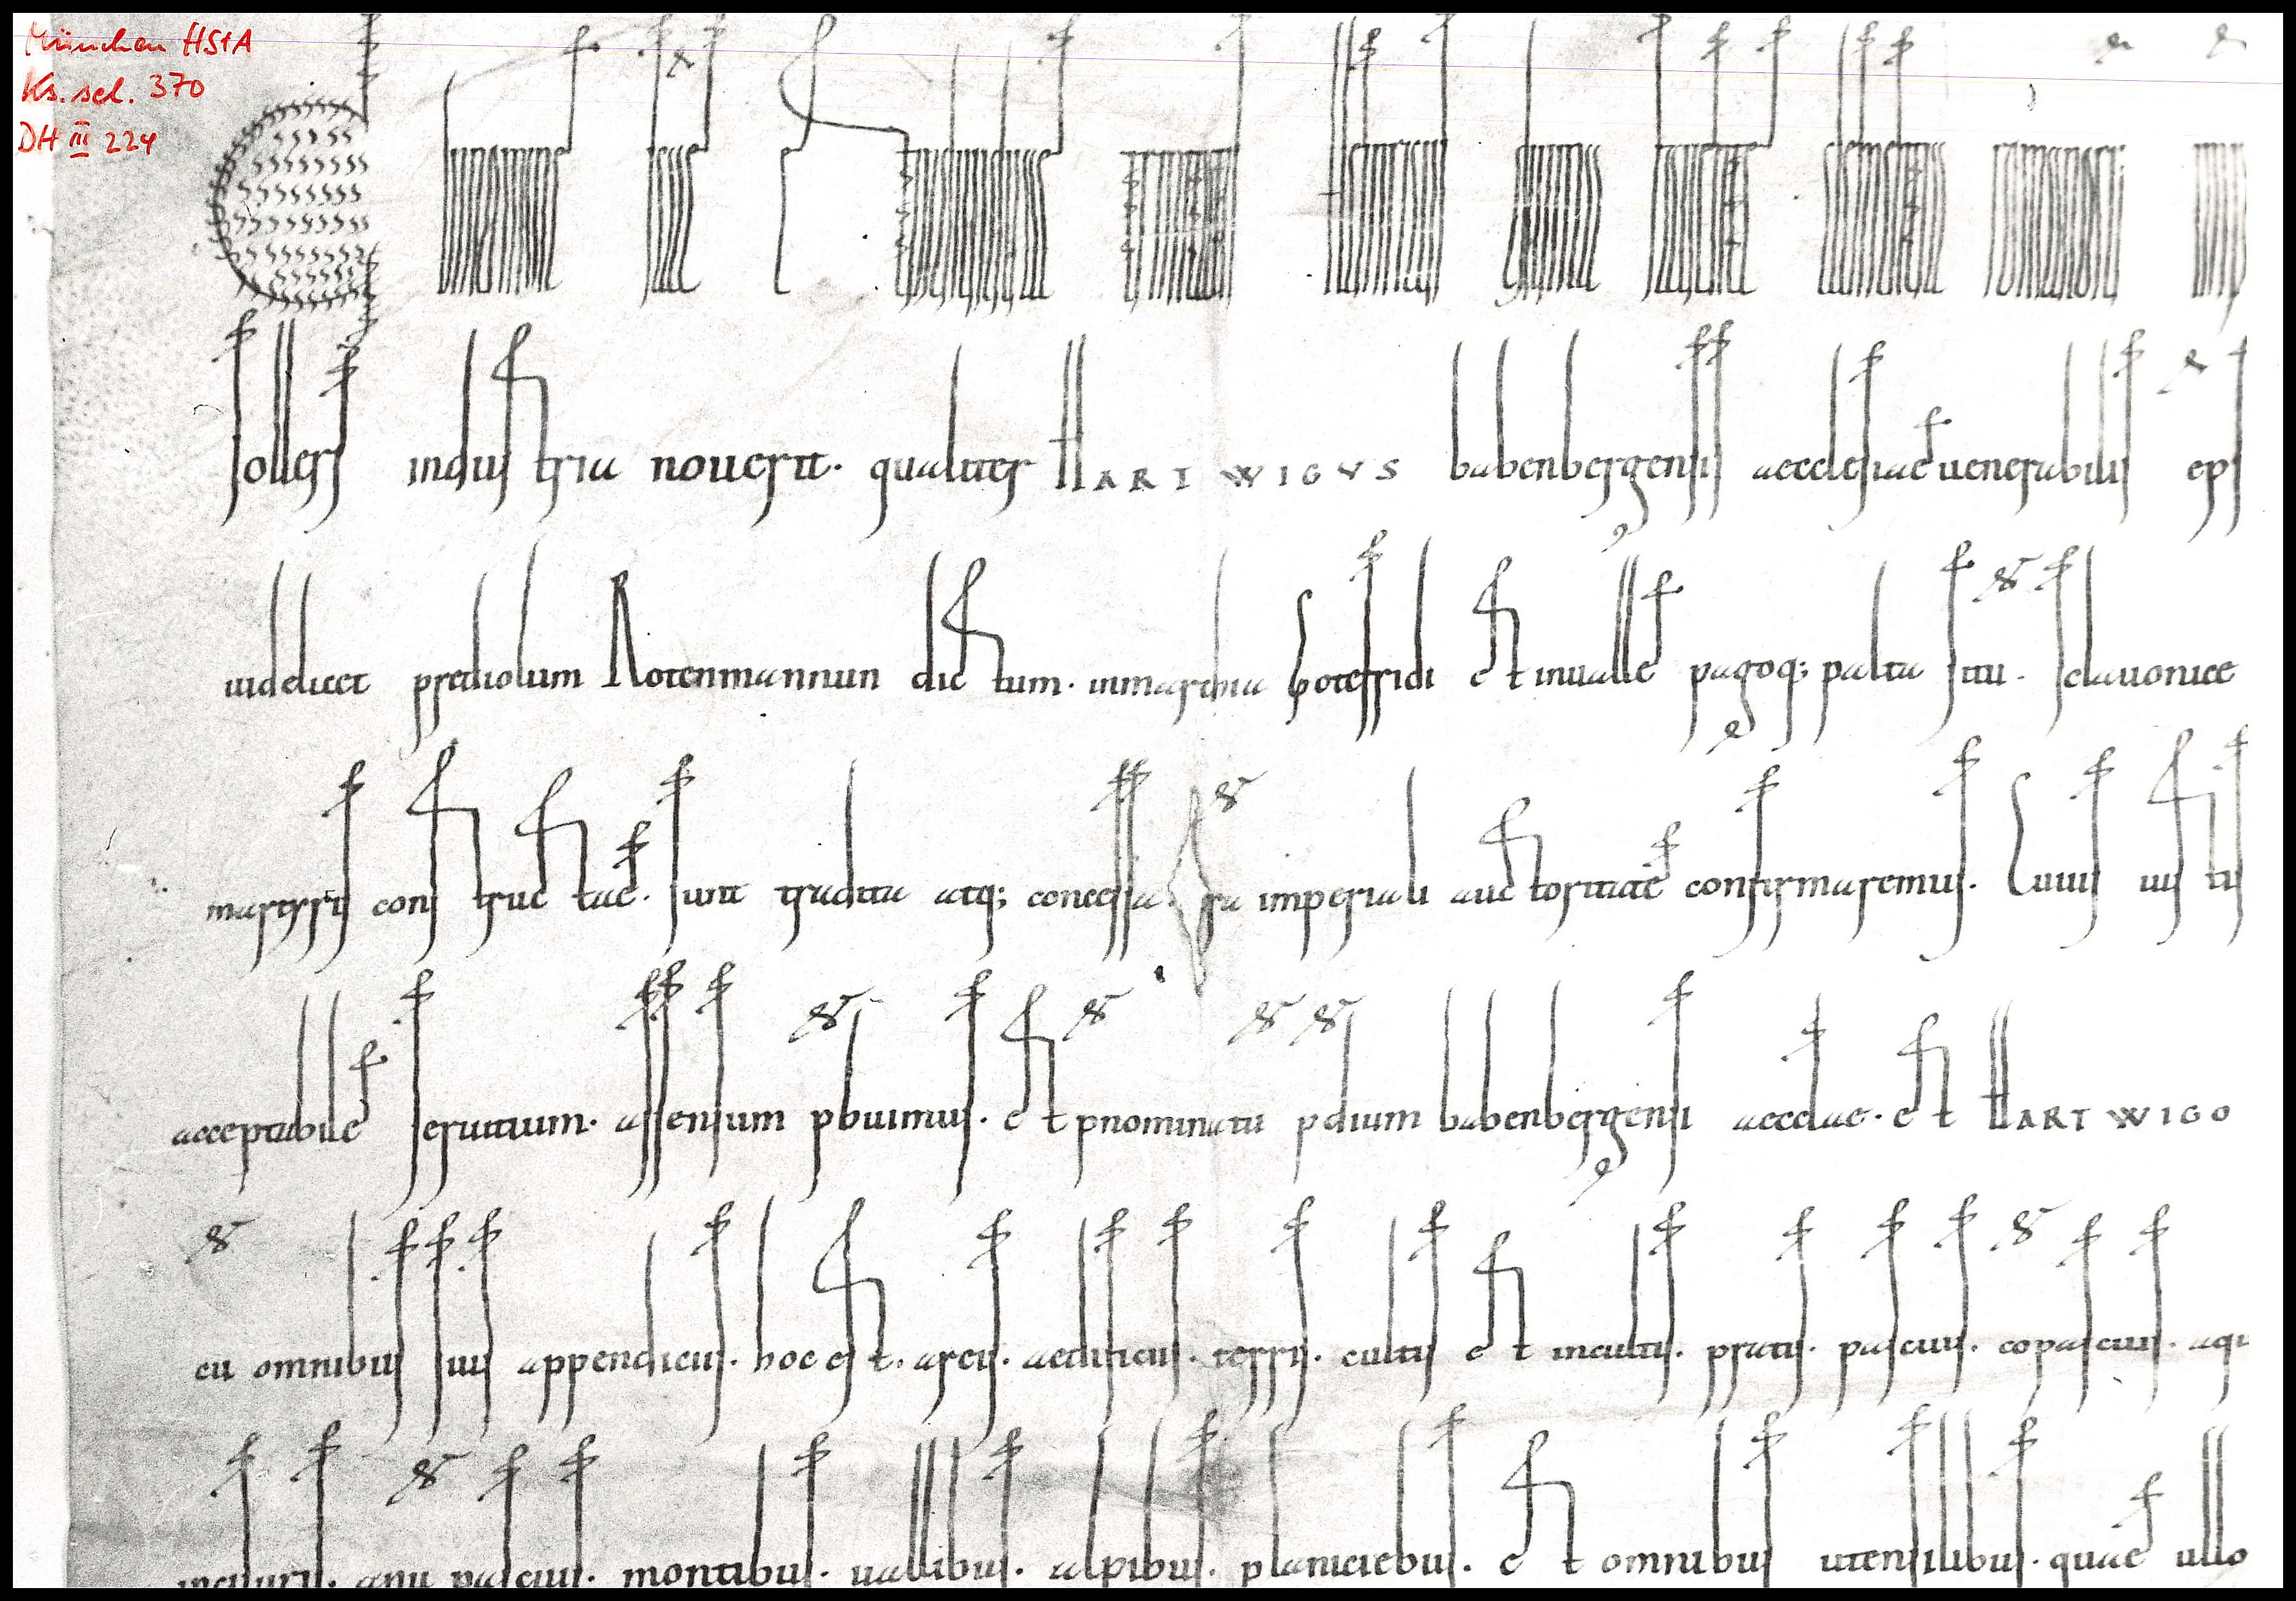 München HStA
Ks. sel. 370
DH III 224
In nomine sce et indiuidue trinitatis heinricus diuina fauente clementia romanorum imp
sollers industria nouerit. qualiter HARTWIGVS babenbergensis aecclesiae uenerabilis eps
uidelicet prediolum Rotenmannun dictum. in marchia Gotefridi et in ualle pagoq; palta situ. sclauonice
martyris constructae. sunt tradita atq; concessa ra imperiali auctoritate confirmaremus. Cuius iustis
acceptabile seruitium. assensum pbuimus. et pnominatu pdium babenbergensi aecclae. et HARTWIGO
cu omnibus suis appendiciis. hoc est. areis. aedificiis. terris. cultis et incultis. pratis. pascuis. copascuis. aqu
pascuis. montibus. uallibus. alpibus. planiciebus. et omnibus utensilibus. quae ullo